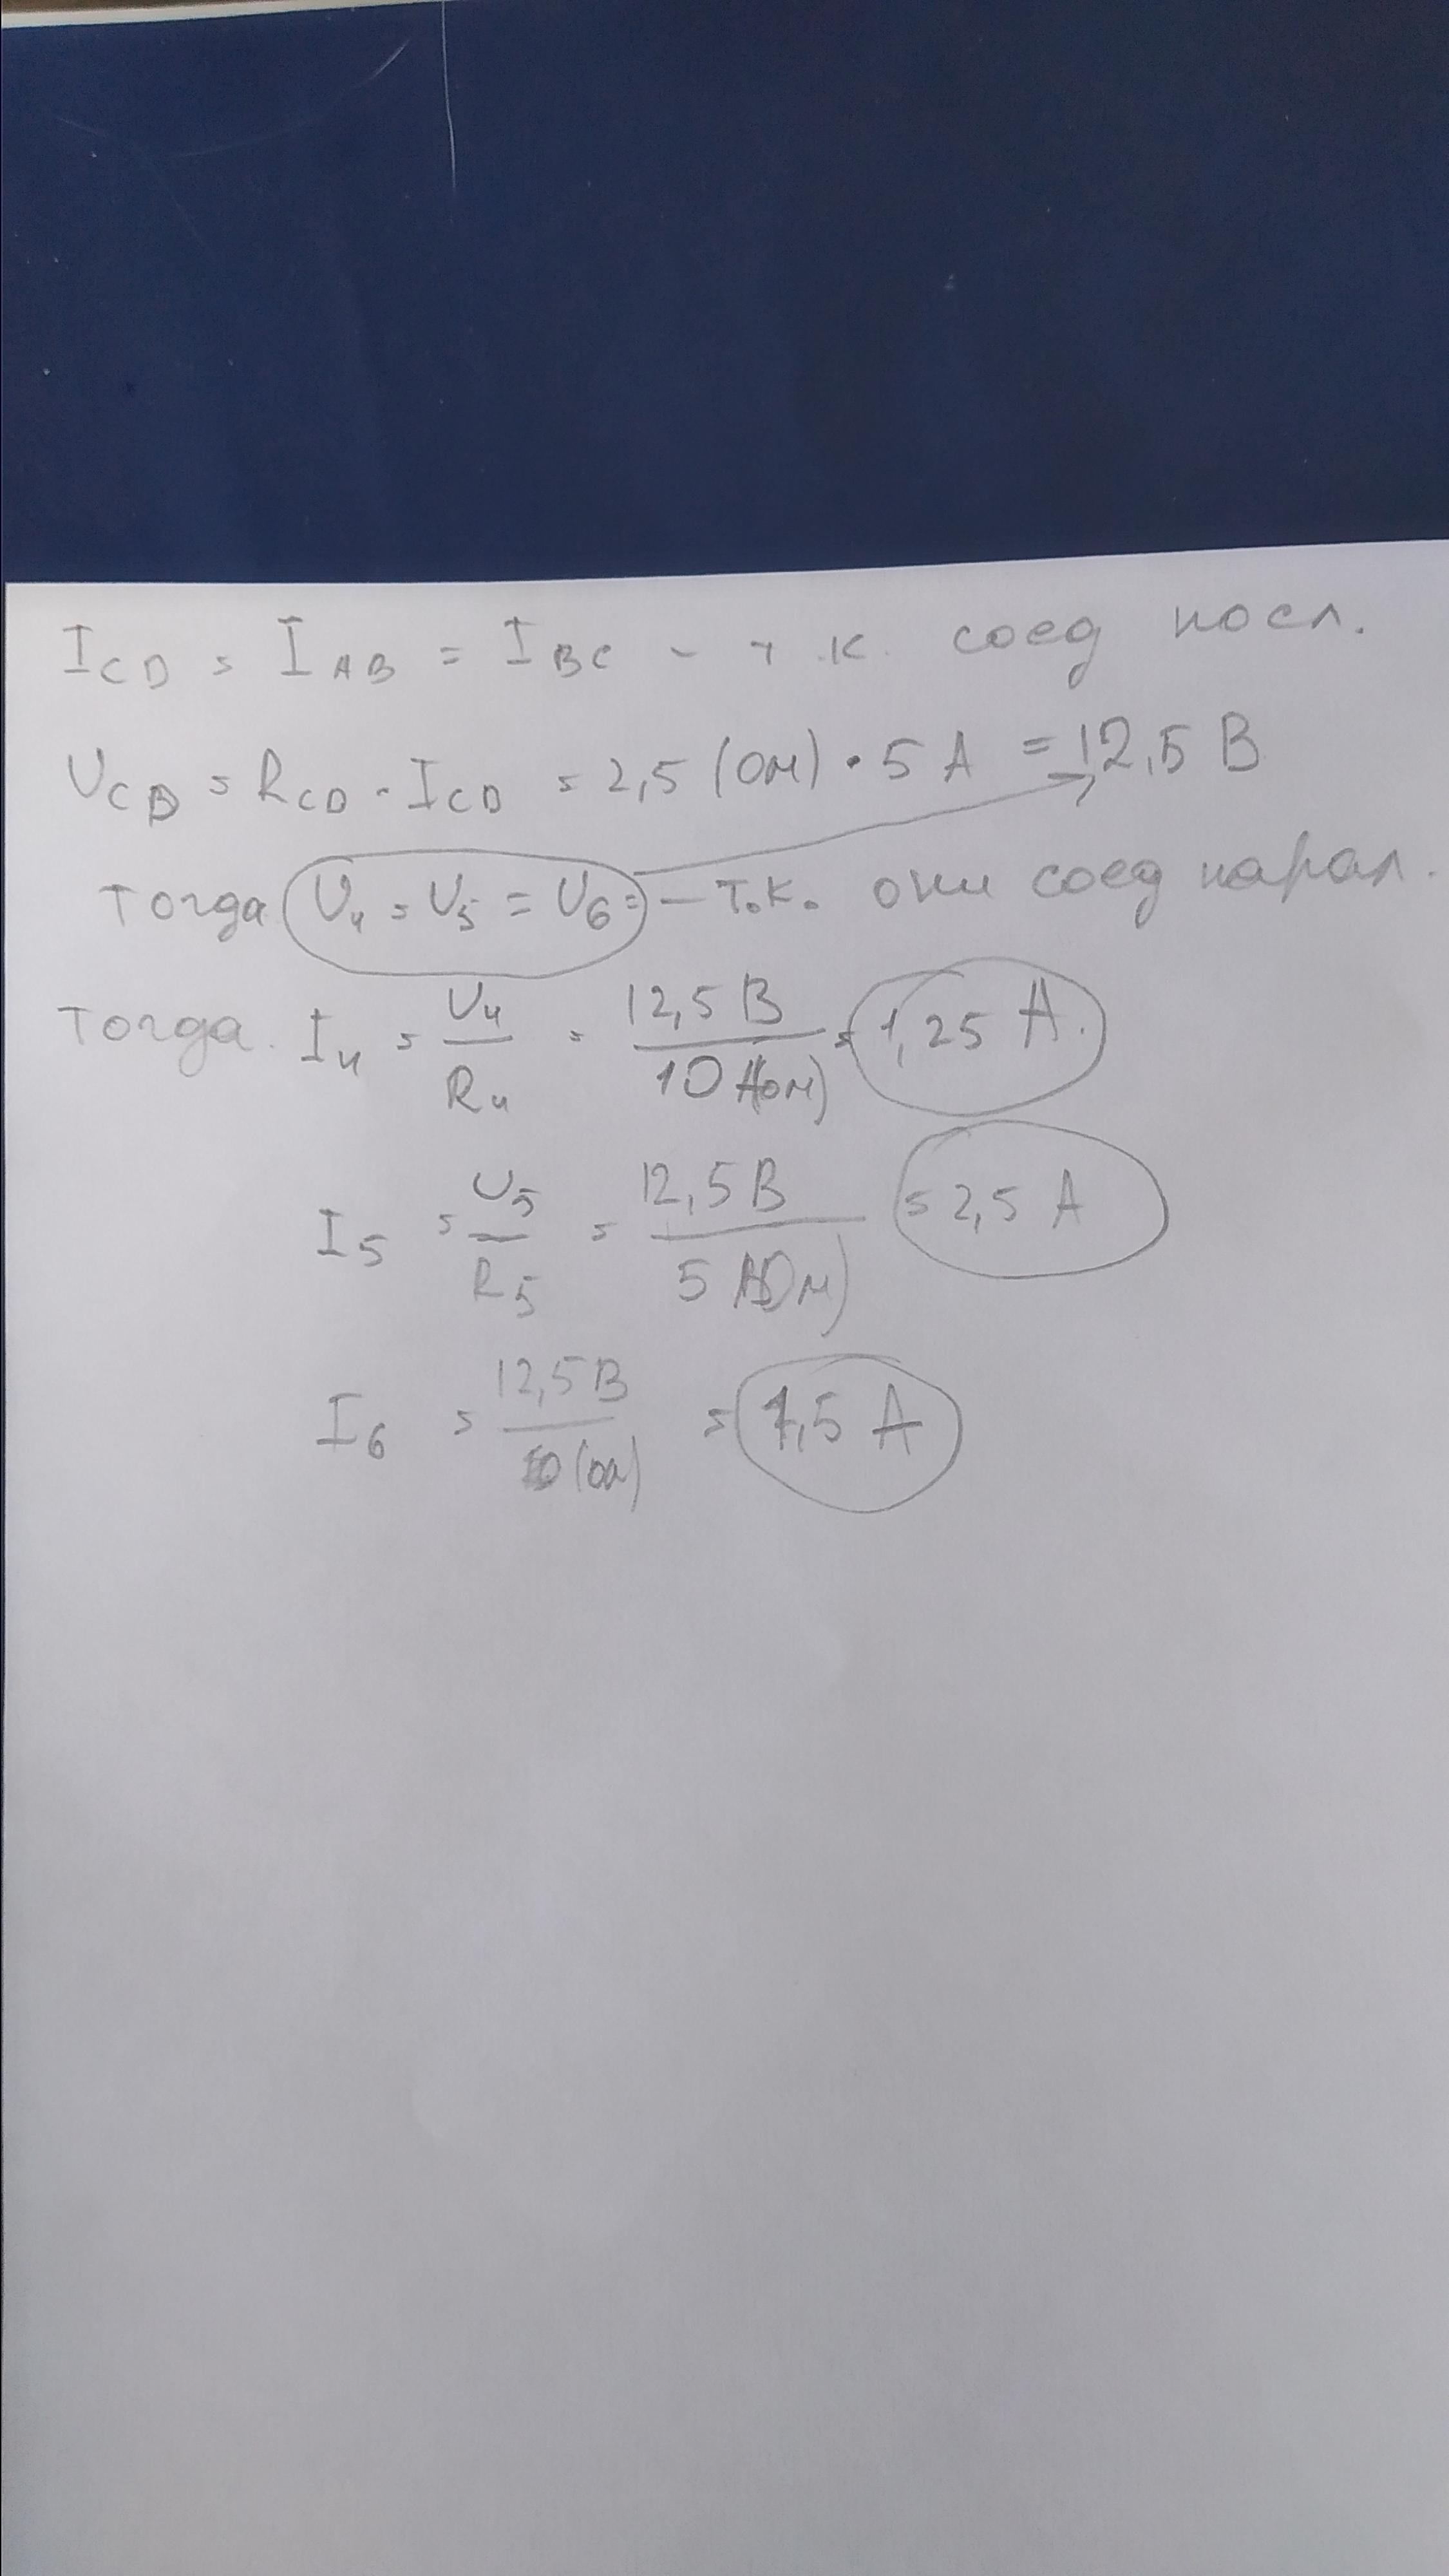 I CD = I AB = I BC - т.к. соед посл.
U CD = R CD · I CD = 2,5 (Ом) · 5 А = 12,5 В
Тогда U4 = U5 = U6 = - т.к. они соед парал.
Тогда. I4 = U4 / R4 = 12,5 В / 10 (Ом) = 1,25 А.
I5 = U5 / R5 = 12,5 В / 5 (Ом) = 2,5 А
I6 = 12,5 В / 10 (Ом) = 1,5 А